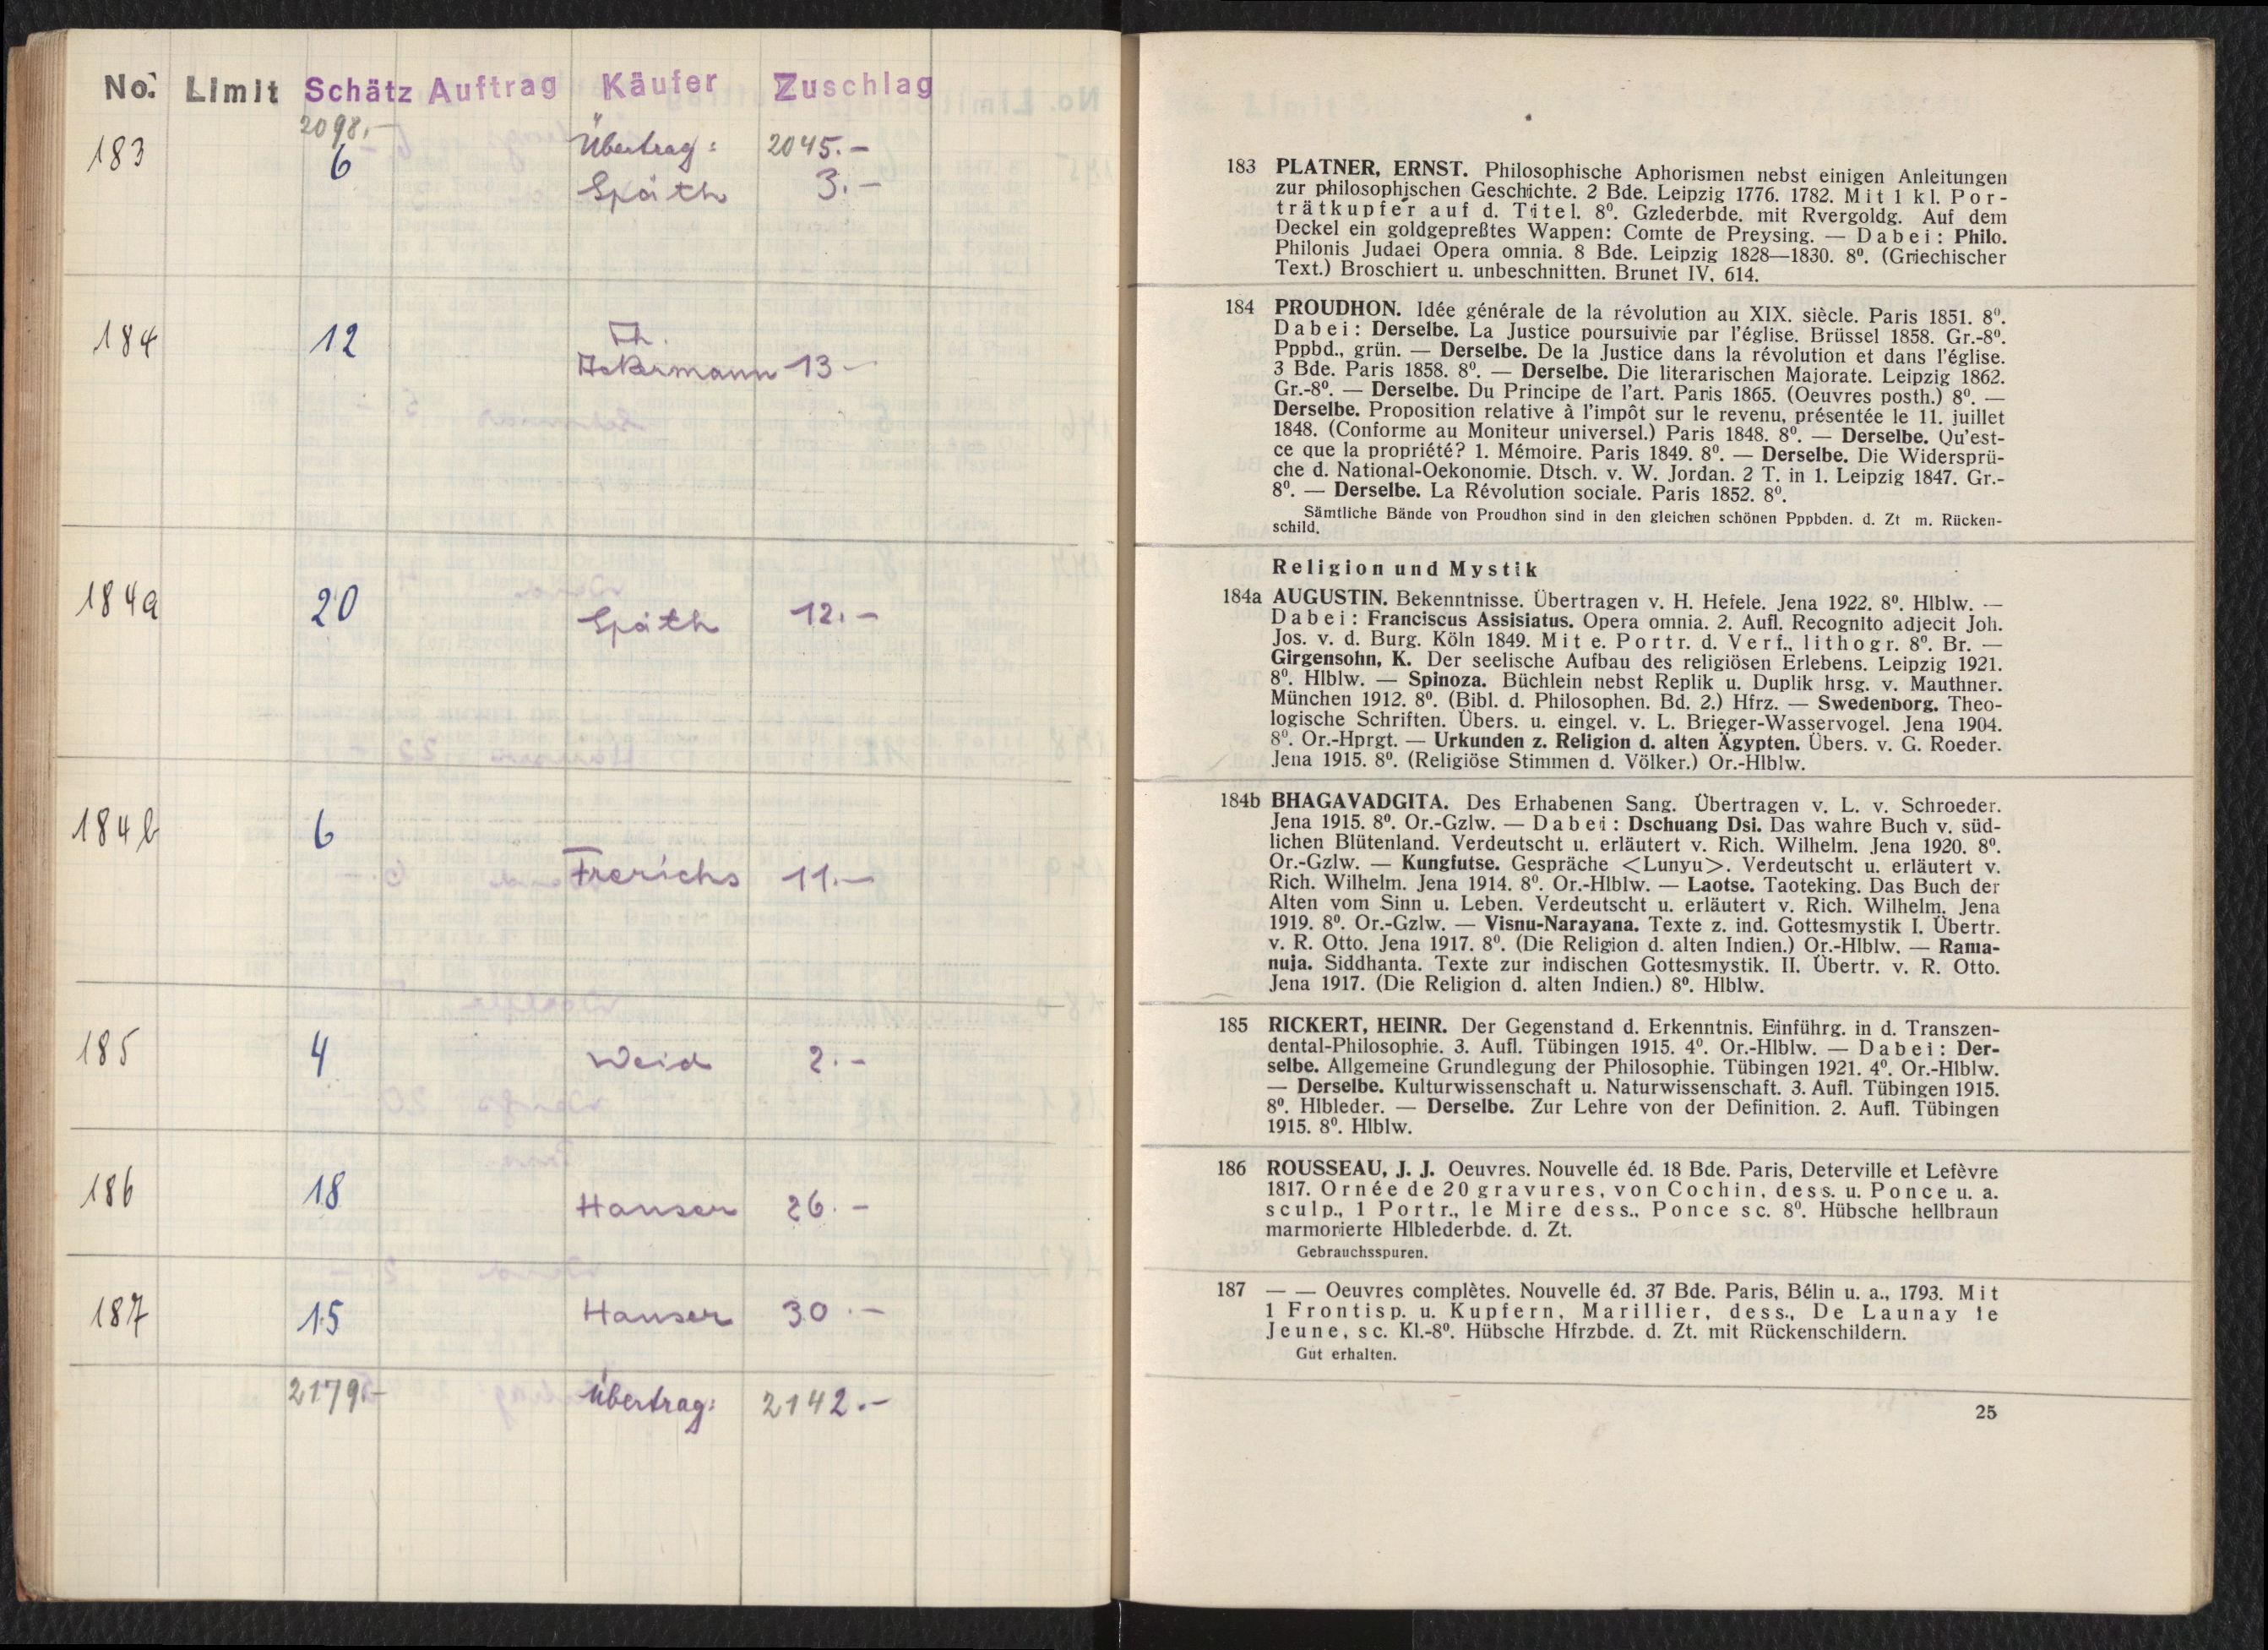 No. Limit Schätz Auftrag Käufer Zuschlag
2098.- Übertrag: 2045.-
183 6 Späth 3.-
184 12 Th. Ackermann 13.-
184a 20 Späth 12.-
184b 6 Frerichs 11.-
185 4 Weid 2.-
186 18 Hauser 26.-
187 15 Hauser 30.-
2179.- Übertrag: 2142.-
183 PLATNER, ERNST. Philosophische Aphorismen nebst einigen Anleitungen
zur philosophischen Geschichte. 2 Bde. Leipzig 1776. 1782. Mit 1 kl. Por-
trätkupfer auf d. Titel. 8⁰. Gzlederbde. mit Rvergoldg. Auf dem
Deckel ein goldgepreßtes Wappen: Comte de Preysing. — Dabei: Philo.
Philonis Judaei Opera omnia. 8 Bde. Leipzig 1828—1830. 8⁰. (Griechischer
Text.) Broschiert u. unbeschnitten. Brunet IV, 614.
184 PROUDHON. Idée générale de la révolution au XIX. siècle. Paris 1851. 8⁰.
Dabei: Derselbe. La Justice poursuivie par l'église. Brüssel 1858. Gr.-8⁰.
Pppbd., grün. — Derselbe. De la Justice dans la révolution et dans l'église.
3 Bde. Paris 1858. 8⁰. — Derselbe. Die literarischen Majorate. Leipzig 1862.
Gr.-8⁰. — Derselbe. Du Principe de l'art. Paris 1865. (Oeuvres posth.) 8⁰. —
Derselbe. Proposition relative à l'impôt sur le revenu, présentée le 11. juillet
1848. (Conforme au Moniteur universel.) Paris 1848. 8⁰. — Derselbe. Qu'est-
ce que la propriété? 1. Mémoire. Paris 1849. 8⁰. — Derselbe. Die Widersprü-
che d. National-Oekonomie. Dtsch. v. W. Jordan. 2 T. in 1. Leipzig 1847. Gr.-
8⁰. — Derselbe. La Révolution sociale. Paris 1852. 8⁰.
Sämtliche Bände von Proudhon sind in den gleichen schönen Pppbden. d. Zt m. Rücken-
schild.
Religion und Mystik
184a AUGUSTIN. Bekenntnisse. Übertragen v. H. Hefele. Jena 1922. 8⁰. Hlblw. —
Dabei: Franciscus Assisiatus. Opera omnia. 2. Aufl. Recognito adjecit Joh.
Jos. v. d. Burg. Köln 1849. Mit e. Portr. d. Verf., lithogr. 8⁰. Br. —
Girgensohn, K. Der seelische Aufbau des religiösen Erlebens. Leipzig 1921.
8⁰. Hlblw. — Spinoza. Büchlein nebst Replik u. Duplik hrsg. v. Mauthner.
München 1912. 8⁰. (Bibl. d. Philosophen. Bd. 2.) Hfrz. — Swedenborg. Theo-
logische Schriften. Übers. u. eingel. v. L. Brieger-Wasservogel. Jena 1904.
8⁰. Or.-Hprgt. — Urkunden z. Religion d. alten Ägypten. Übers. v. G. Roeder.
Jena 1915. 8⁰. (Religiöse Stimmen d. Völker.) Or.-Hlblw.
184b BHAGAVADGITA. Des Erhabenen Sang. Übertragen v. L. v. Schroeder.
Jena 1915. 8⁰. Or.-Gzlw. — Dabei: Dschuang Dsi. Das wahre Buch v. süd-
lichen Blütenland. Verdeutscht u. erläutert v. Rich. Wilhelm. Jena 1920. 8⁰.
Or.-Gzlw. — Kungfutse. Gespräche <Lunyu>. Verdeutscht u. erläutert v.
Rich. Wilhelm. Jena 1914. 8⁰. Or.-Hlblw. — Laotse. Taoteking. Das Buch der
Alten vom Sinn u. Leben. Verdeutscht u. erläutert v. Rich. Wilhelm. Jena
1919. 8⁰. Or.-Gzlw. — Visnu-Narayana. Texte z. ind. Gottesmystik I. Übertr.
v. R. Otto. Jena 1917. 8⁰. (Die Religion d. alten Indien.) Or.-Hlblw. — Rama-
nuja. Siddhanta. Texte zur indischen Gottesmystik. II. Übertr. v. R. Otto.
Jena 1917. (Die Religion d. alten Indien.) 8⁰. Hlblw.
185 RICKERT, HEINR. Der Gegenstand d. Erkenntnis. Einführg. in d. Transzen-
dental-Philosophie. 3. Aufl. Tübingen 1915. 4⁰. Or.-Hlblw. — Dabei: Der-
selbe. Allgemeine Grundlegung der Philosophie. Tübingen 1921. 4⁰. Or.-Hlblw.
— Derselbe. Kulturwissenschaft u. Naturwissenschaft. 3. Aufl. Tübingen 1915.
8⁰. Hlbleder. — Derselbe. Zur Lehre von der Definition. 2. Aufl. Tübingen
1915. 8⁰. Hlblw.
186 ROUSSEAU, J. J. Oeuvres. Nouvelle éd. 18 Bde. Paris, Deterville et Lefèvre
1817. Ornée de 20 gravures, von Cochin, dess. u. Ponce u. a.
sculp., 1 Portr., le Mire dess., Ponce sc. 8⁰. Hübsche hellbraun
marmorierte Hlblederbde. d. Zt.
Gebrauchsspuren.
187 — — Oeuvres complètes. Nouvelle éd. 37 Bde. Paris, Bélin u. a., 1793. Mit
1 Frontisp. u. Kupfern, Marillier, dess., De Launay le
Jeune, sc. Kl.-8⁰. Hübsche Hfrzbde. d. Zt. mit Rückenschildern.
Gut erhalten.
25